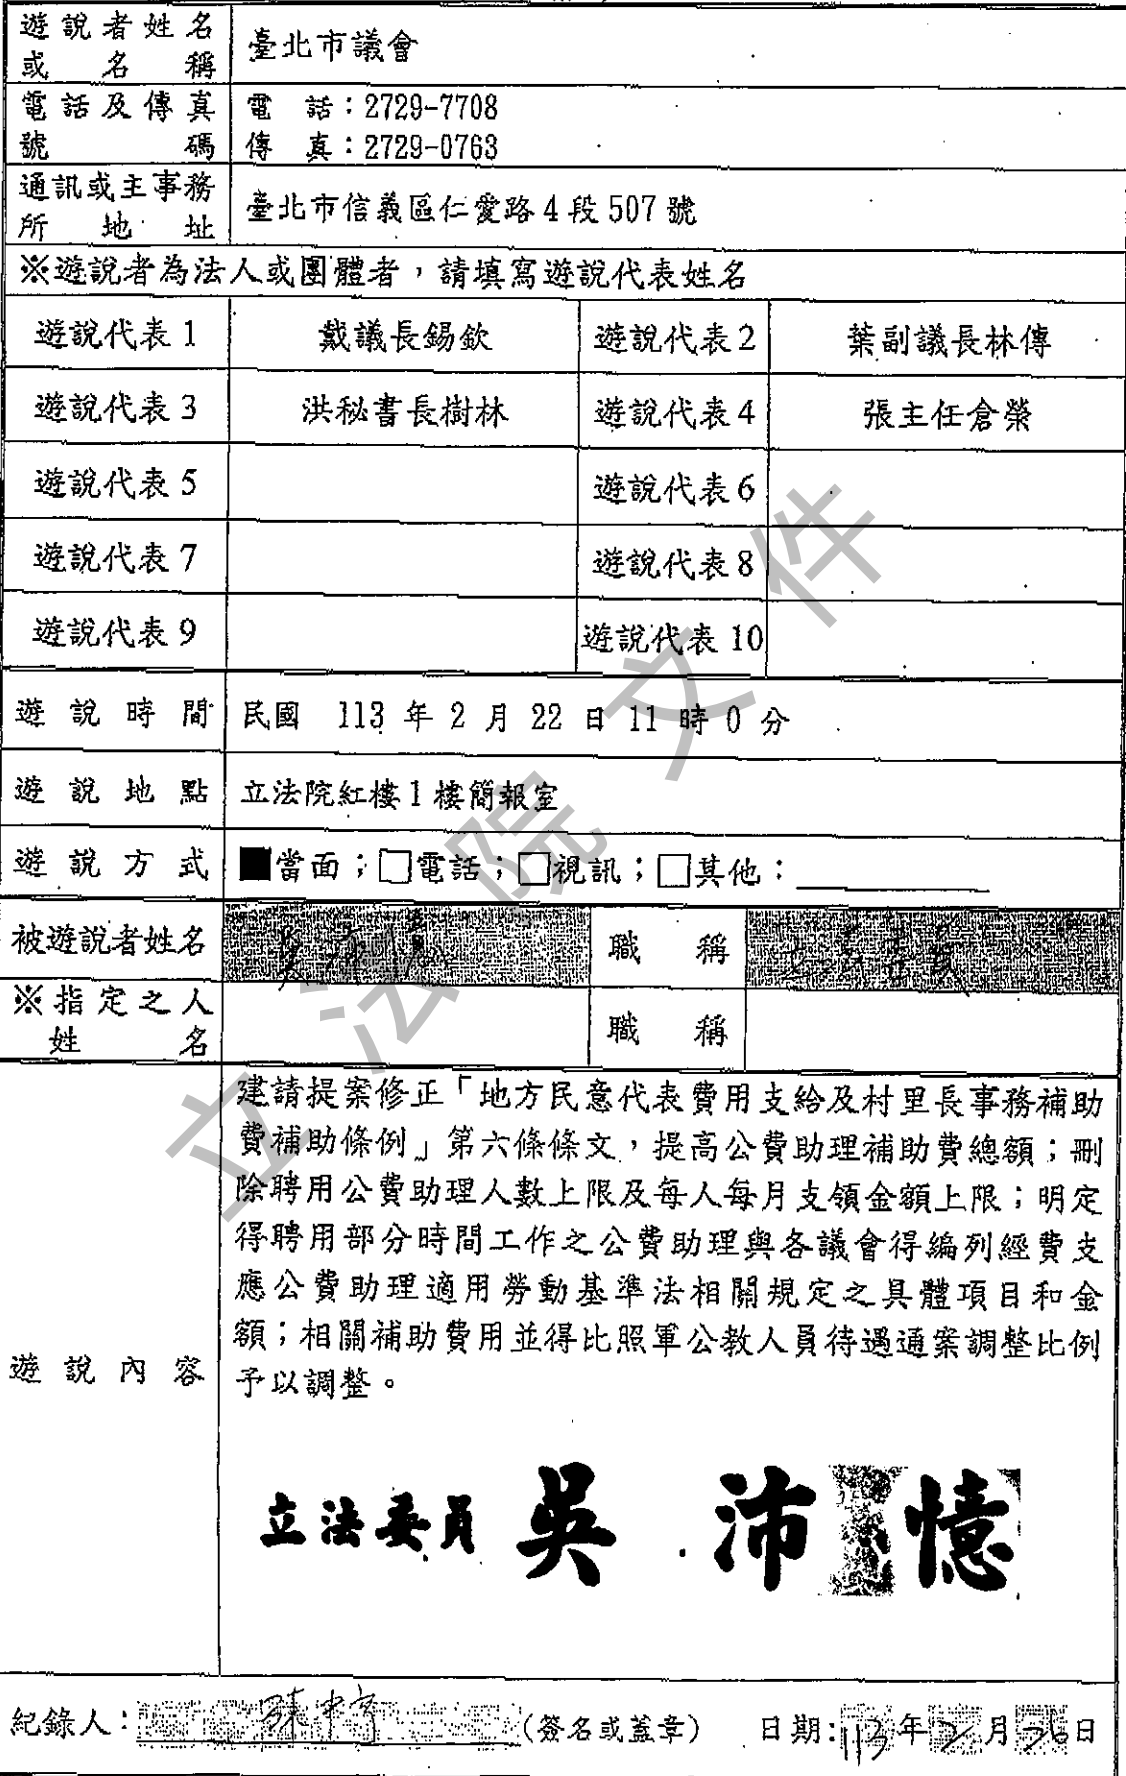 遊說者姓名
或名稱
臺北市議會
電話及傳真
號碼
電 話：2729-7708
傳 真：2729-0763
通訊或主事務
所地址
臺北市信義區仁愛路4段507號
※遊說者為法人或團體者，請填寫遊說代表姓名
遊說代表1 戴議長錫欽 遊說代表2 葉副議長林傳
遊說代表3 洪秘書長樹林 遊說代表4 張主任倉榮
遊說代表5 遊說代表6
遊說代表7 遊說代表8
遊說代表9 遊說代表10
遊說時間 民國 113 年 2 月 22 日 11 時 0 分
遊說地點 立法院紅樓1樓簡報室
遊說方式 ■當面；□電話；□視訊；□其他：
被遊說者姓名 吳沛憶 職稱
※指定之人
姓名
職稱
遊說內容
建請提案修正「地方民意代表費用支給及村里長事務補助
費補助條例」第六條條文，提高公費助理補助費總額；刪
除聘用公費助理人數上限及每人每月支領金額上限；明定
得聘用部分時間工作之公費助理與各議會得編列經費支
應公費助理適用勞動基準法相關規定之具體項目和金
額；相關補助費用並得比照軍公教人員待遇通案調整比例
予以調整。
立法委員 吳沛憶
紀錄人： (簽名或蓋章) 日期：113年2月26日
立法院文件